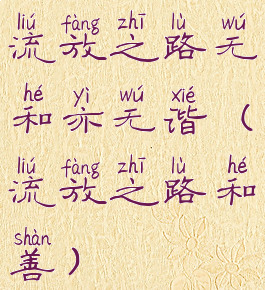 liú fàng zhī lù wú
流放之路无
hé yì wú xié
和亦无谐（
liú fàng zhī lù hé
流放之路和
shàn
善）